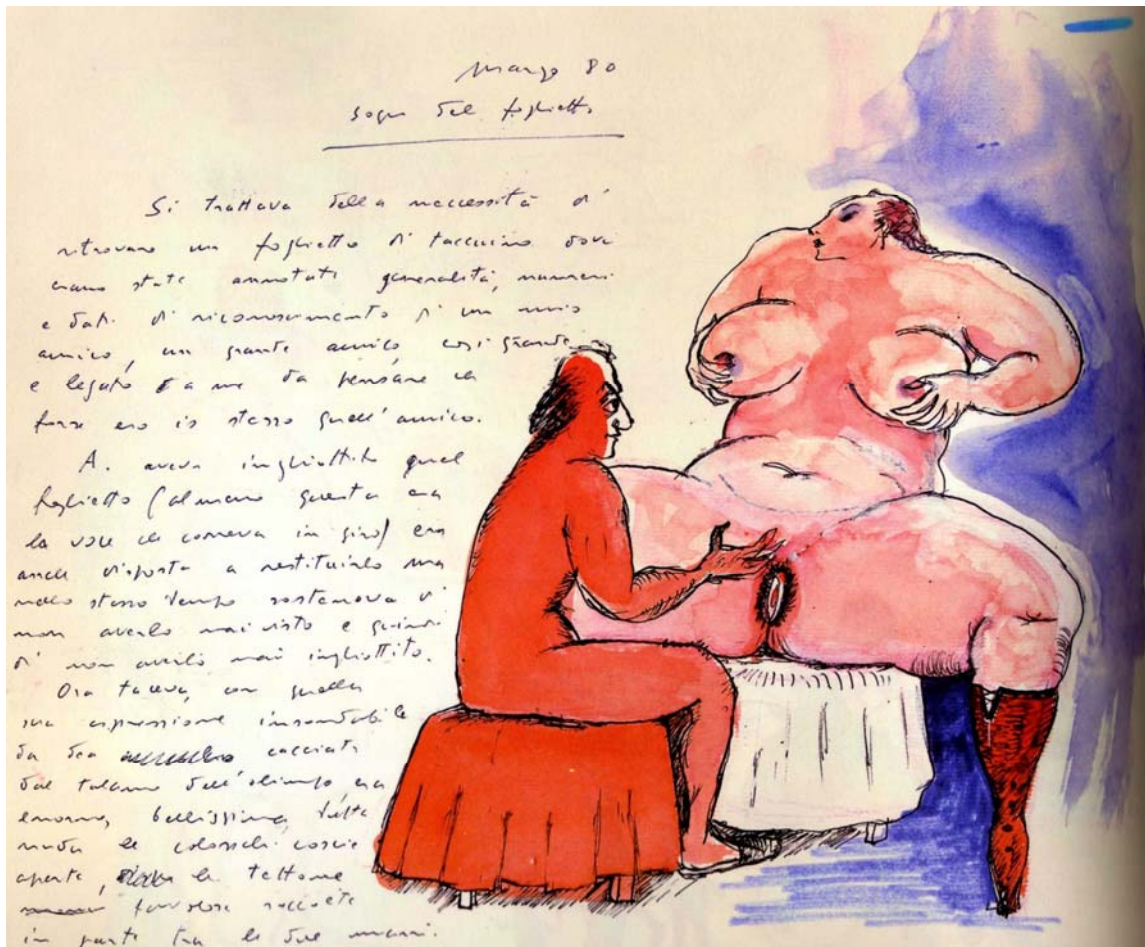 Marzo 80
Sogno del foglietto
Si trattava della neccessità di
ritrovare un foglietto di taccuino dove
erano state annotati generalità, numeri
e dati di riconoscimento di un mio
amico, un grande amico, così grande
e legato a me da pensare che
forse ero io stesso quell'amico.
A. aveva inghiottito quel
foglietto (almeno questa era
la voce che correva in giro) era
anche disposta a restituirlo ma
nello stesso tempo sosteneva di
non averlo mai visto e quindi
di non averlo mai inghiottito.
Ora taceva, con quella
sua espressione insondabile
da dea cacciata
dal talamo dell'olimpo, era
enorme, bellissima, tutta
nuda le colossali coscie
aperte, le tettone
favolose raccolte
in parte tra le due mani.